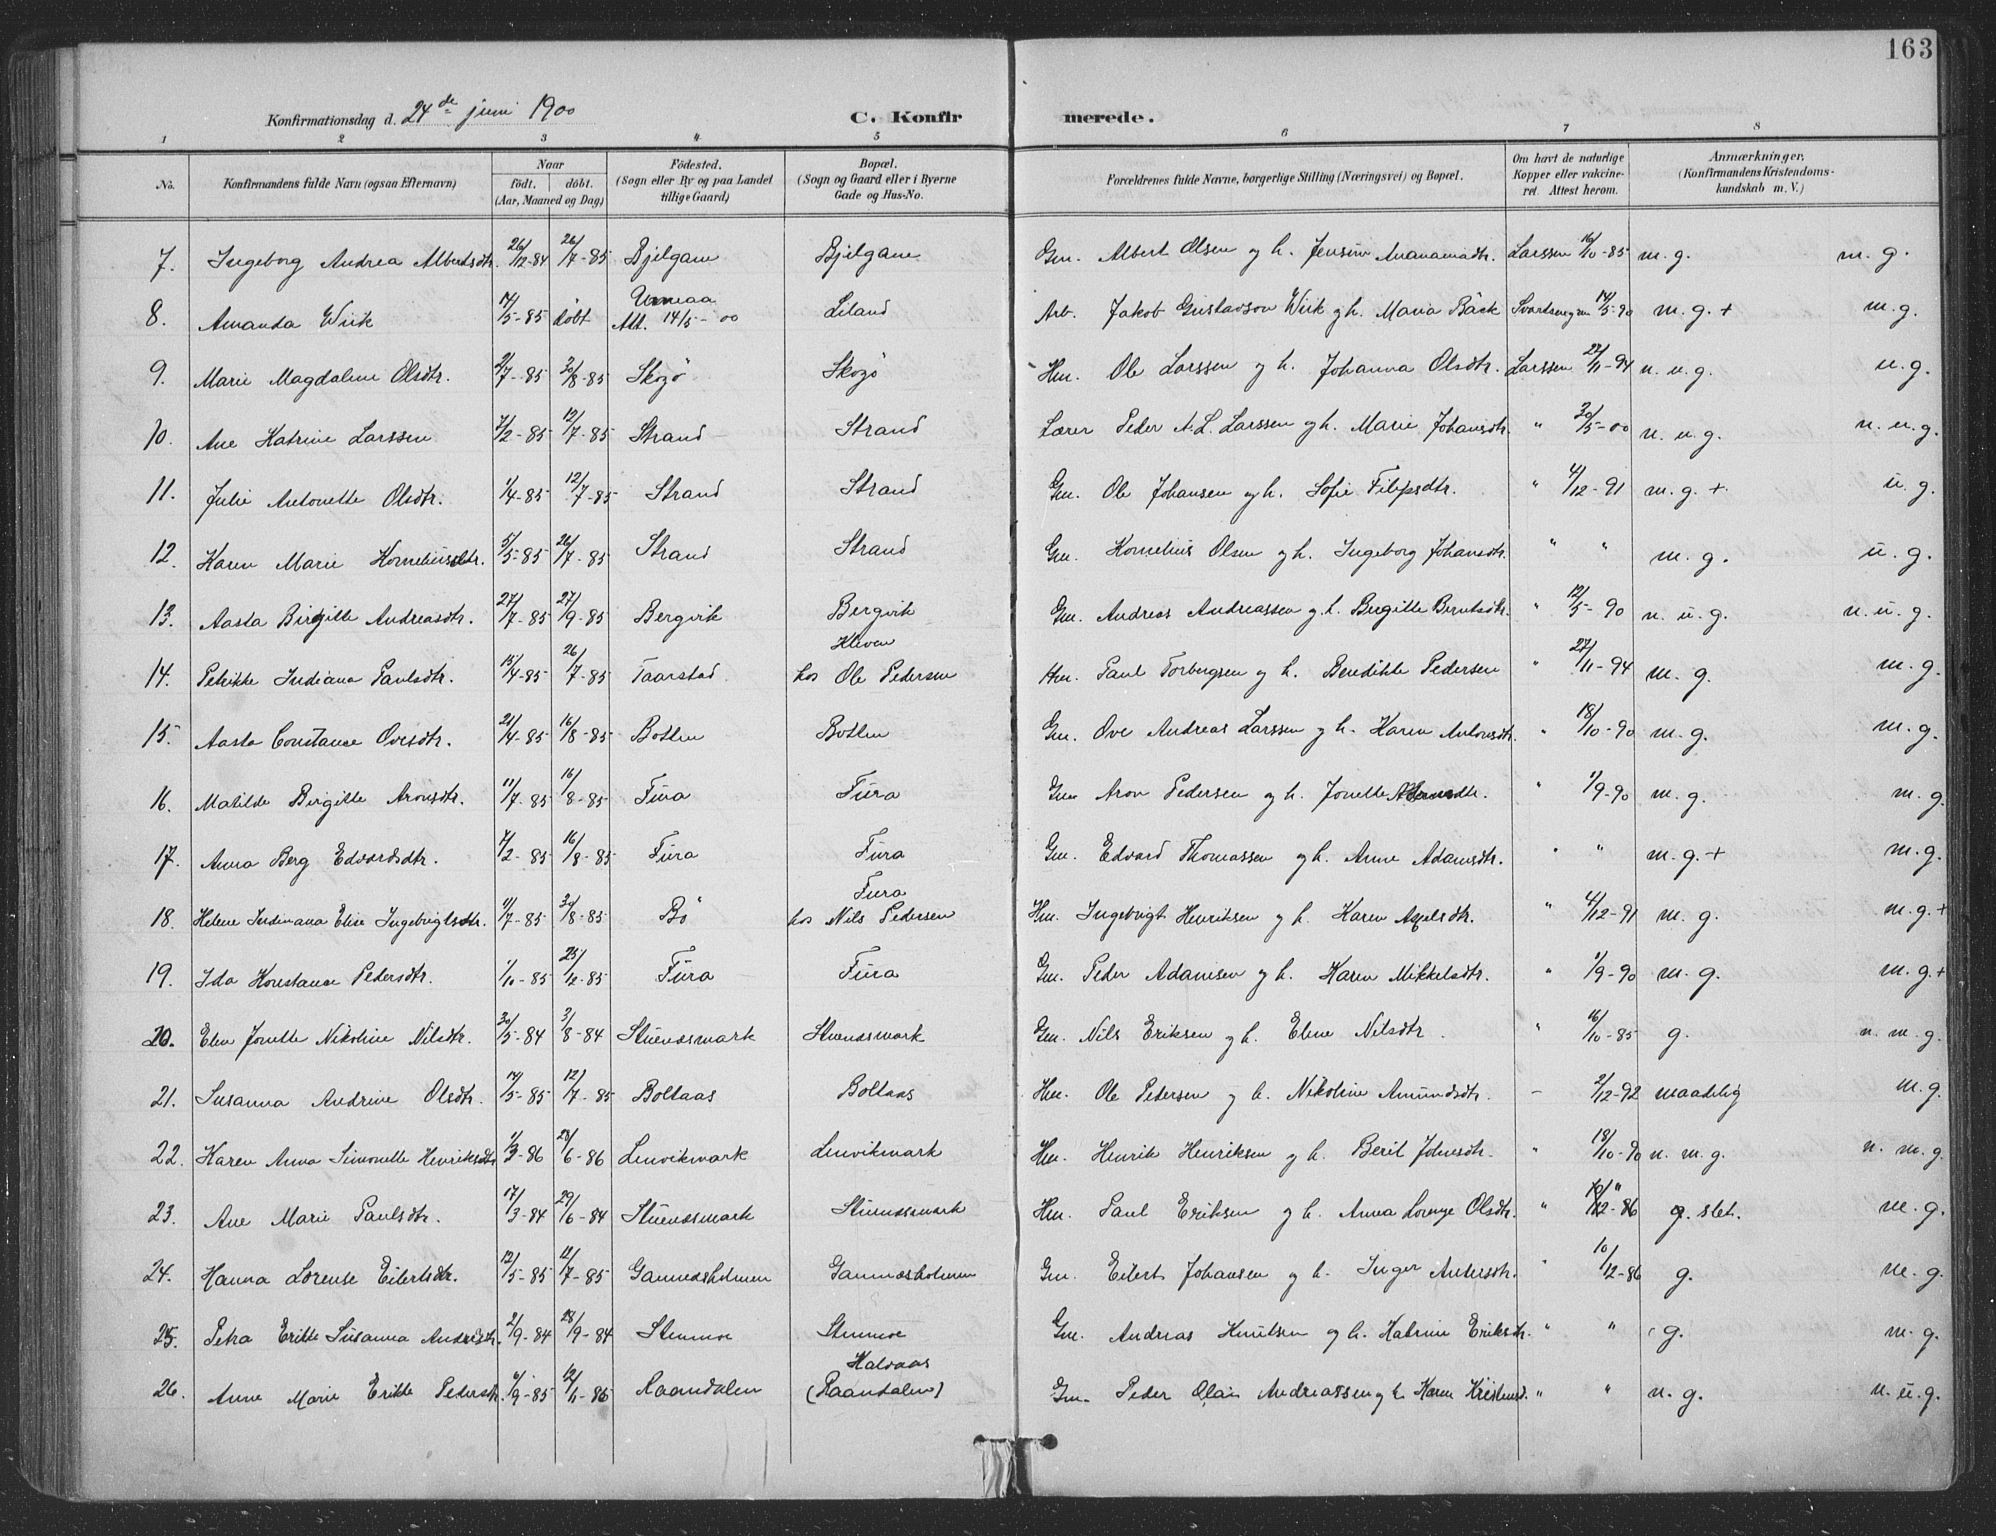 163
Konfirmationsdag d. 24de juni 1900 C. Konfirmerede.
1 2 3 4 5 6 7 8
No. Konfirmandens fulde Navn (ogsaa Efternavn) Naar födt. döbt. (Aar, Maaned og Dag) Födested. (Sogn eller By og paa Landet tillige Gaard) Bopæl. (Sogn og Gaard eller i Byerne Gade og Hus-No. Forældrenes fulde Navne, borgerlige Stilling (Næringsvei) og Bopæl. Om havt de naturlige Kopper eller vaccineret. Attest herom. Anmærkninger. (Konfirmandens Kristendomskundskab m. V.)
7. Ingeborg Andrea Albertsdtr. 26/12-84 26/7-85 Bjelgam Bjelgam Gm. Albert Olsen og h. Jensine Larssen 16/10-85 m. g. m. g.
8. Amanda Wiik 14/5-85 döbt Umeaa Att. 14/5-00 Liland Arb. Jakob Gustavson Wiik og h. Maria Bäck 14/5-90 m. g. + m. g.
9. Marie Magdalene Olsdtr. 2/7-85 20/8-85 Skozö Skozö Hm. Ole Larssen og h. Johanna Olsdtr. Larssen 27/11-94 n. u. g. u. g.
10. Ane Katrine Larssen 7/2-85 12/7-85 Strand Strand Lærer Peder A. L. Larssen og h. Marie Johansdtr. " 30/5-00 n. u. g. n. u. g.
11. Julie Antonette Olsdtr. 1/4-85 12/7-85 Strand Strand Gm. Ole Johansen og h. Sofie Filipsdtr. " 4/12-91 m. g. +. u. g.
12. Karen Marie Korneliusdtr. 5/5-85 26/7-85 Strand Strand Gm. Kornelius Olsen og h. Ingeborg Johansdtr. " " m. g. u. g.
13. Aasta Birgitte Andreasdtr. 27/7-85 27/9-85 Bergvik Bergvik Gm. Andreas Andreassen og h. Birgitte Berntsdtr. " 12/5-90 n. u. g. n. u. g.
14. Petrikke Indiana Paulsdtr. 15/4-85 26/7-85 Taarstad Kleven hos Ole Pedersen Hm. Paul Torbergsen og h. Benedikte Pedersen " 27/11-94 m. g. m. g.
15. Aasta Constance Ovesdtr. 21/4-85 16/8-85 Botten Botten Gm. Ove Andreas Larssen og h. Karen Antonsdtr. " 18/10-90 m. g. m. g.
16. Matilde Birgitte Aronsdtr. 11/7-85 16/8-85 Fura Fura Gm Aron Pedersen og h. Jonette " 1/9-90 m. g. m. g.
17. Anna Berg Edvardsdtr. 7/2-85 16/8-85 Fura Fura Gm. Edvard Thomassen og h. Anne Adamsdtr. " " m. g. + m. g.
18. Helene Indiana Elise Ingebrigtsdtr. 11/7-85 30/8-85 Bö Fura hos Nils Pedersen Hm. Ingebrigt Henriksen og h. Karen Axelsdtr. " 4/12-91 m. g. m. g. +
19. Ida Konstanse Pedersdtr. 1/10-85 25/12-85 Fura Fura Gm. Peder Adamsen og h. Karen Mikkelsdtr. " 1/9-90 m. g. m. g. +
20. Elen Jonette Nikoline Nilsdtr. 30/5-84 3/8-84 Stuenesmark Stuenesmark Gm. Nils Eriksen og h. Eline Nilsdtr. " 16/10-85 g. n. m. g.
21. Susanna Andrine Olsdtr. 14/5-85 12/7-85 Boltaas Boltaas Hm. Ole Pedersen og h. Nikoline Amundsdtr. - 2/12-92 maadelig m. g.
22. Karen Anna Simonette Henriksdtr 1/3-86 28/6-86 Lenvikmark Lenvikmark Hm. Henrik Henriksen og h. Berit Johnsdtr. " 18/10-90 n. m. g. n. m. g.
23. Ane Marie Paulsdtr. 17/3-84 29/6-84 Stuenesmark Stuenesmark Hm. Paul Eriksen og h. Anna Lorense Olsdtr. " 10/12-86 g. slet. m. g.
24. Hanna Lorense Eilertsdtr. 12/5-85 12/7-85 Gammesholmen Gammesholmen Gm. Eilert Johansen og h. Inger Andersdtr. " 10/12-86 g. m. g.
25. Petra Erikke Susanna Andrsdtr. 2/9-84 28/9-84 Stenmoe Stenmoe Gm. Andreas Knutsen og h. Katrine Eriksdtr. " " g. m. g.
26. Anne Marie Erikke Pedersdtr. 6/9-85 12/11-86 Raandalen Halvaas (Raandalen) Gm. Peder Olai Andreassen og h. Karen Kristensd. " " n. g. n. u. g.